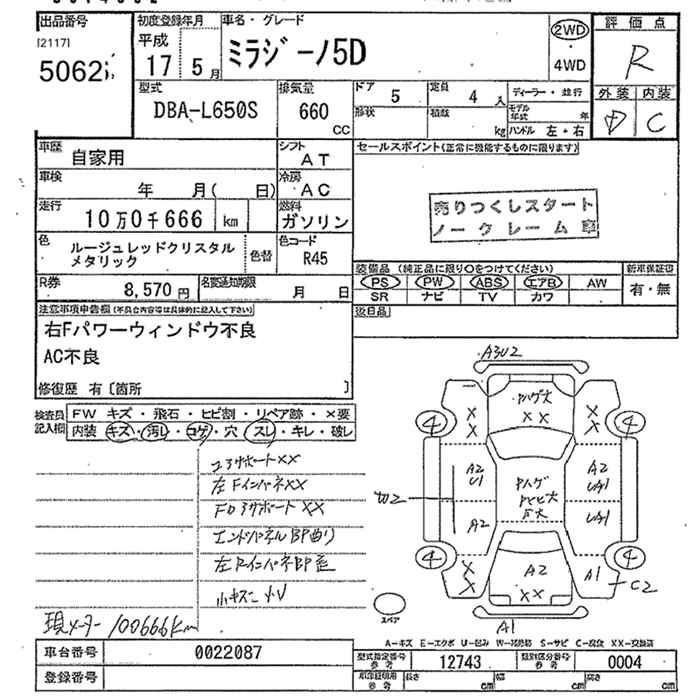 出品番号
[2117]
初度登録年月
平成
17 5月
車名・グレード
ミラジーノ5D
2WD
・
4WD
評価点
R
外装 内装
D C
型式
DBA-L650S
排気量
660
CC
ドア
5
定員
4 人
形状
積載
kg
ディーラー・並行
モデル年式 年
ハンドル 左・右
車歴
自家用
シフト
AT
車検
年 月( 日)
冷房
AC
走行
10万0千666 km
燃料
ガソリン
色
ルージュレッドクリスタル
メタリック
色替
色コード
R45
R券
8,570円
名変通知期限
月 日
セールスポイント(正常に機能するものに限ります)
売りつくしスタート
ノークレーム車
装備品 (純正品に限り○をつけてください)
PS PW ABS エアB AW
SR ナビ TV カワ
新車保証書
有・無
後日品
注意事項申告欄(不具合内容等は具体的に記入して下さい)
右Fパワーウィンドウ不良
AC不良
修復歴 有〔箇所 〕
検査員
記入欄
FW キズ・飛石・ヒビ割・リペア跡・×要
内装 キズ・汚レ・コゲ・穴・スレ・キレ・破レ
コアサポートXX
左FインパネXX
エンドパネルBP曲り
現メーター 100666km
A3U2
XX
XX
XX
XX
XX
4
4
4
4
A2
U1
A2
A2
UA1
UA1
A2
A1
C2
A1
スペア
A-キズ E-エクボ U-凹み W-補修跡 S-サビ C-腐食 XX-交換済
車台番号
0022087
登録番号
型式指定番号
参考
12743
類別区分番号
参考
0004
車庫証明用
参考
長さ cm
幅 cm
高さ cm